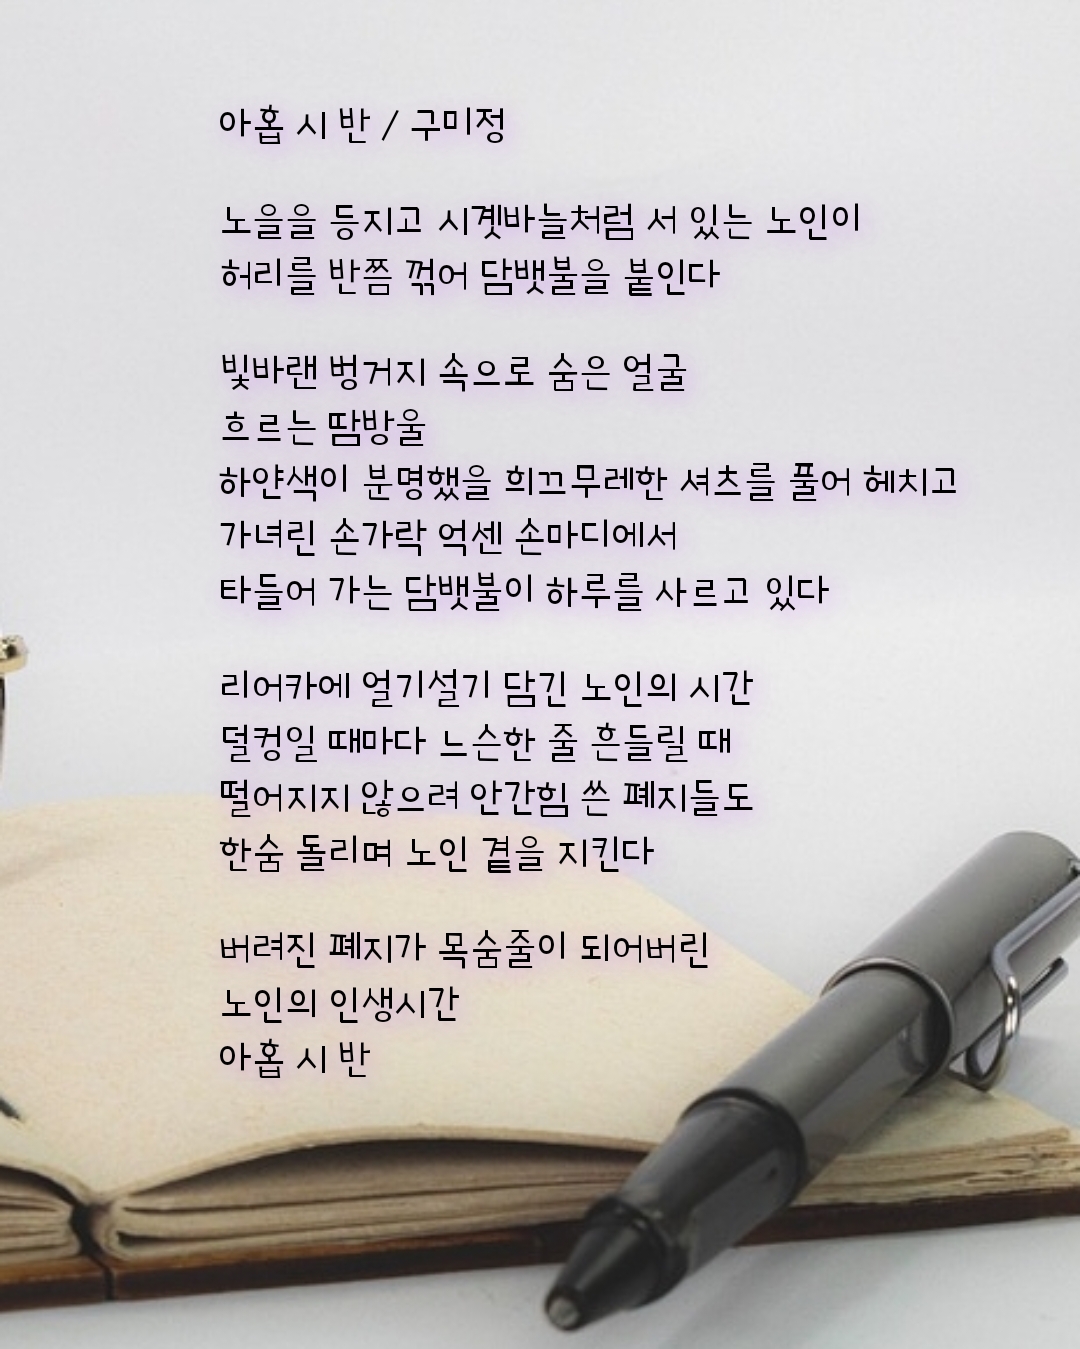 아홉 시 반 / 구미정
노을을 등지고 시곗바늘처럼 서 있는 노인이
허리를 반쯤 꺾어 담뱃불을 붙인다
빛바랜 벙거지 속으로 숨은 얼굴
흐르는 땀방울
하얀색이 분명했을 희끄무레한 셔츠를 풀어 헤치고
가녀린 손가락 억센 손마디에서
타들어 가는 담뱃불이 하루를 사르고 있다
리어카에 얼기설기 담긴 노인의 시간
덜컹일 때마다 느슨한 줄 흔들릴 때
떨어지지 않으려 안간힘 쓴 폐지들도
한숨 돌리며 노인 곁을 지킨다
버려진 폐지가 목숨줄이 되어버린
노인의 인생시간
아홉 시 반